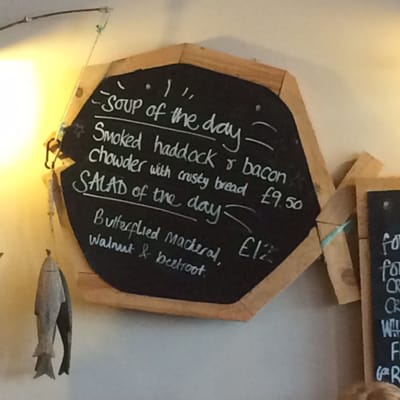 SOUP of the day
Smoked haddock & bacon
chowder with crusty bread £9.50
SALAD of the day
Butterflied Mackerel, £12
walnut & beetroot